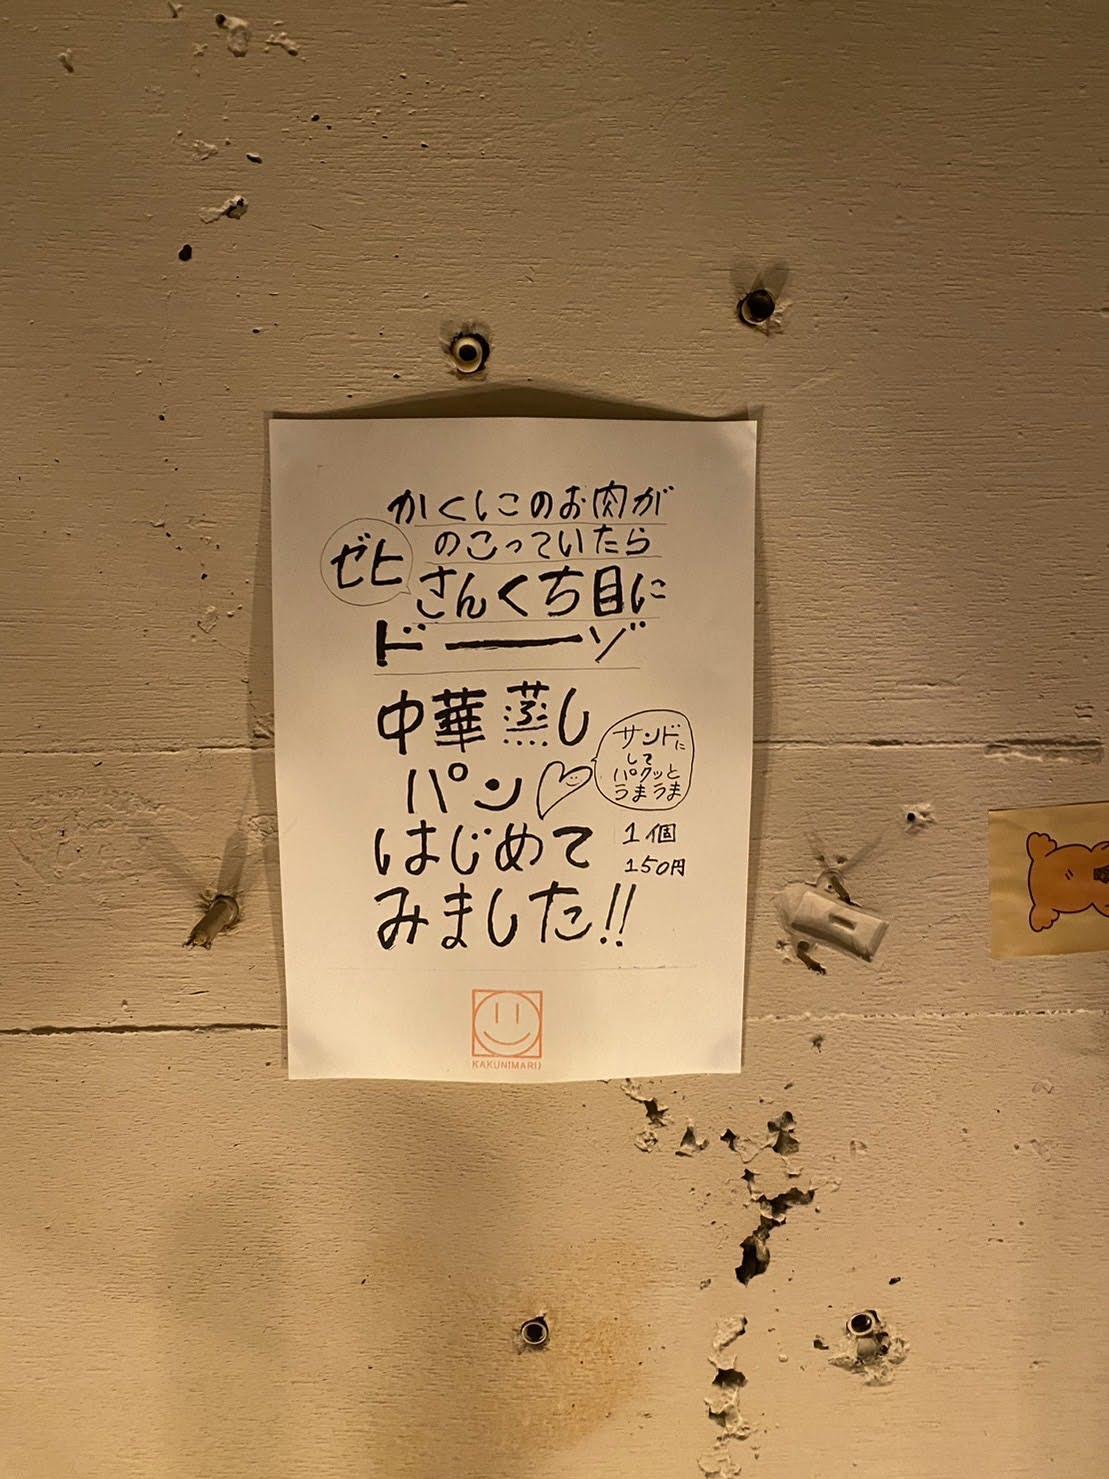 かくにこのお肉が
のこっていたら
ゼヒ
さんくち目に
ドーーゾ
中華蒸し
パン
サンドに
して
パクッと
うまうま
はじめて
1個
150円
みました!!
KAKUNIMARU